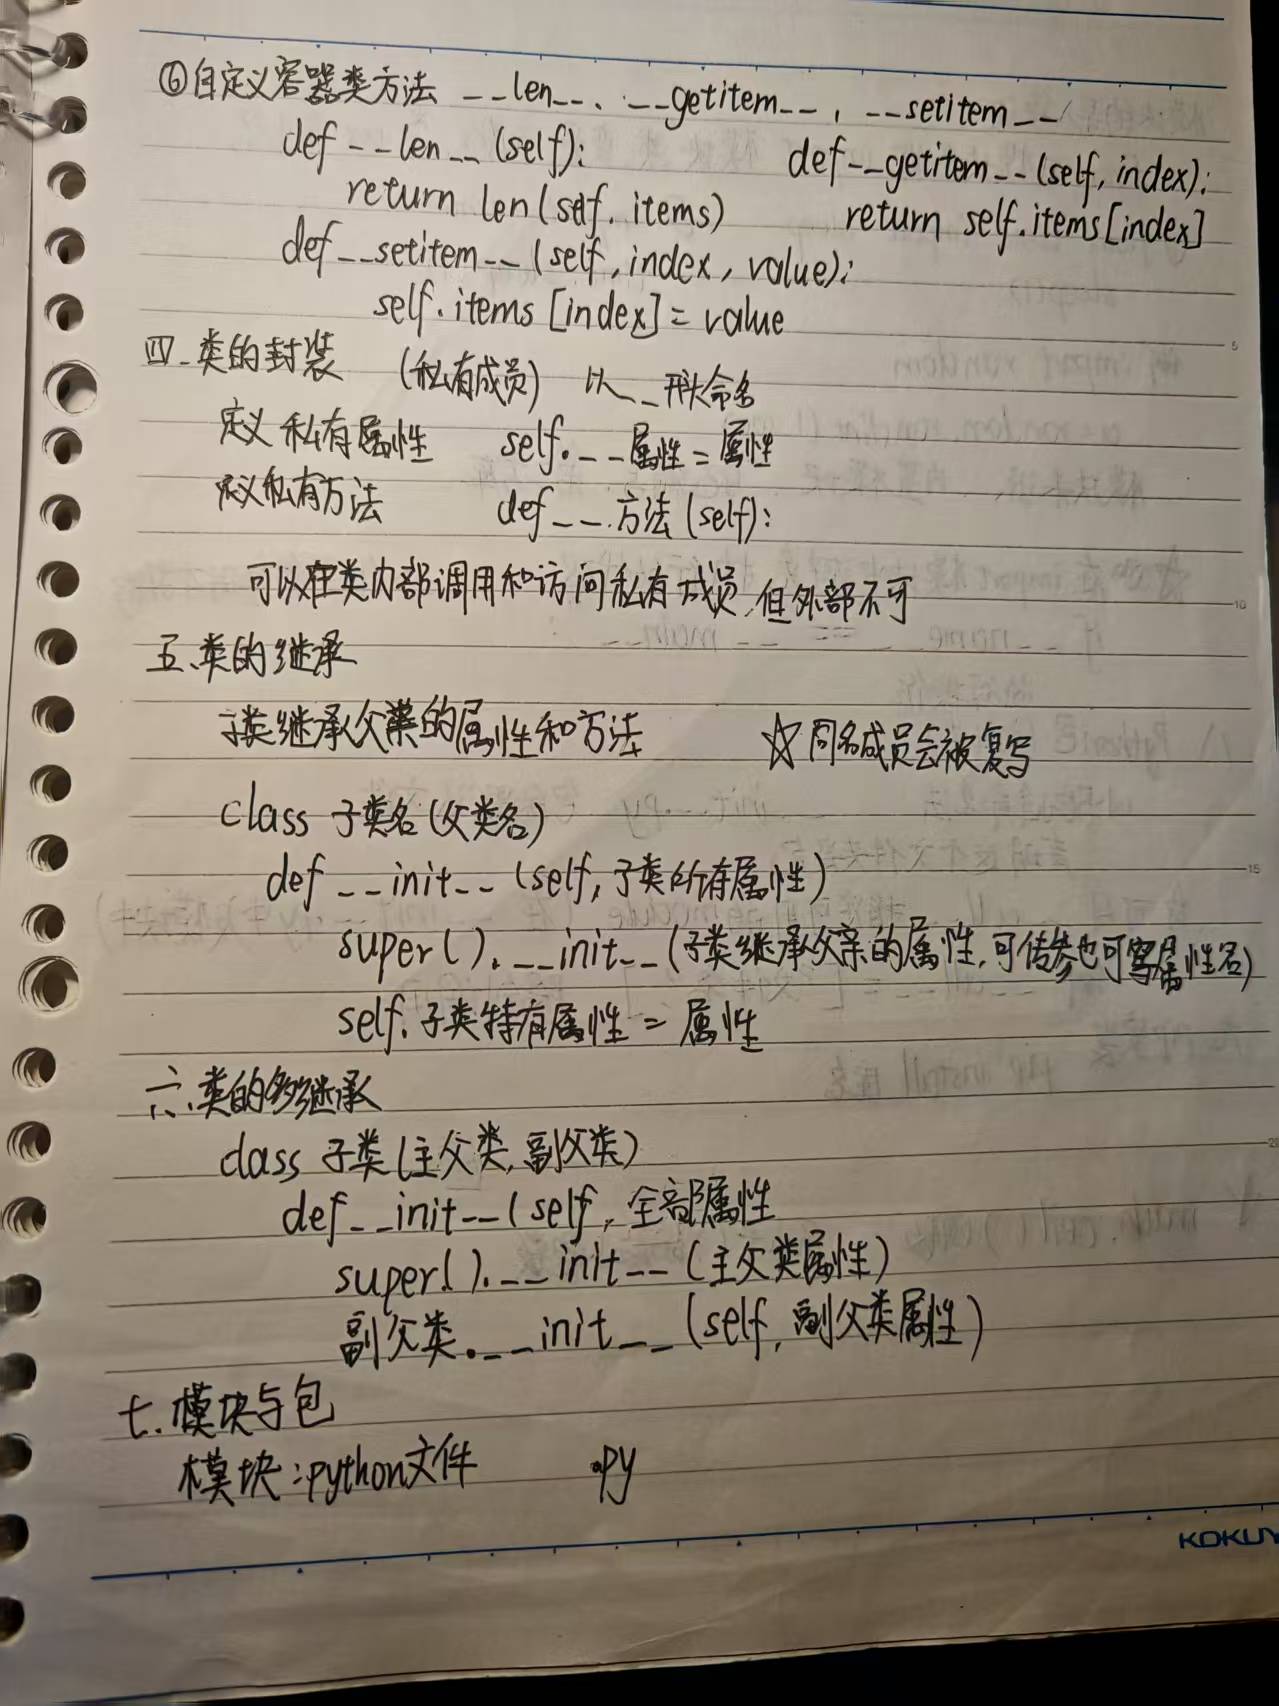 ⑥自定义容器类方法 __len__、__getitem__，__setitem__
def __len__(self): def __getitem__(self, index):
return len(self.items) return self.items[index]
def __setitem__(self, index, value):
self.items[index] = value
四.类的封装 (私有成员) 以__开头命名
定义私有属性 self.__属性=属性
定义私有方法 def __方法(self):
可以在类内部调用和访问私有成员,但外部不可
五.类的继承
子类继承父类的属性和方法 ☆同名成员会被复写
class 子类名(父类名)
def __init__(self,子类所有属性)
super().__init__(子类继承父亲的属性,可传参也可写属性名)
self.子类特有属性=属性
六.类的多继承
class 子类(主父类,副父类)
def __init__(self,全部属性
super().__init__(主父类属性)
副父类.__init__(self,副父类属性)
七.模块与包
模块:python文件 .py
KOKUY